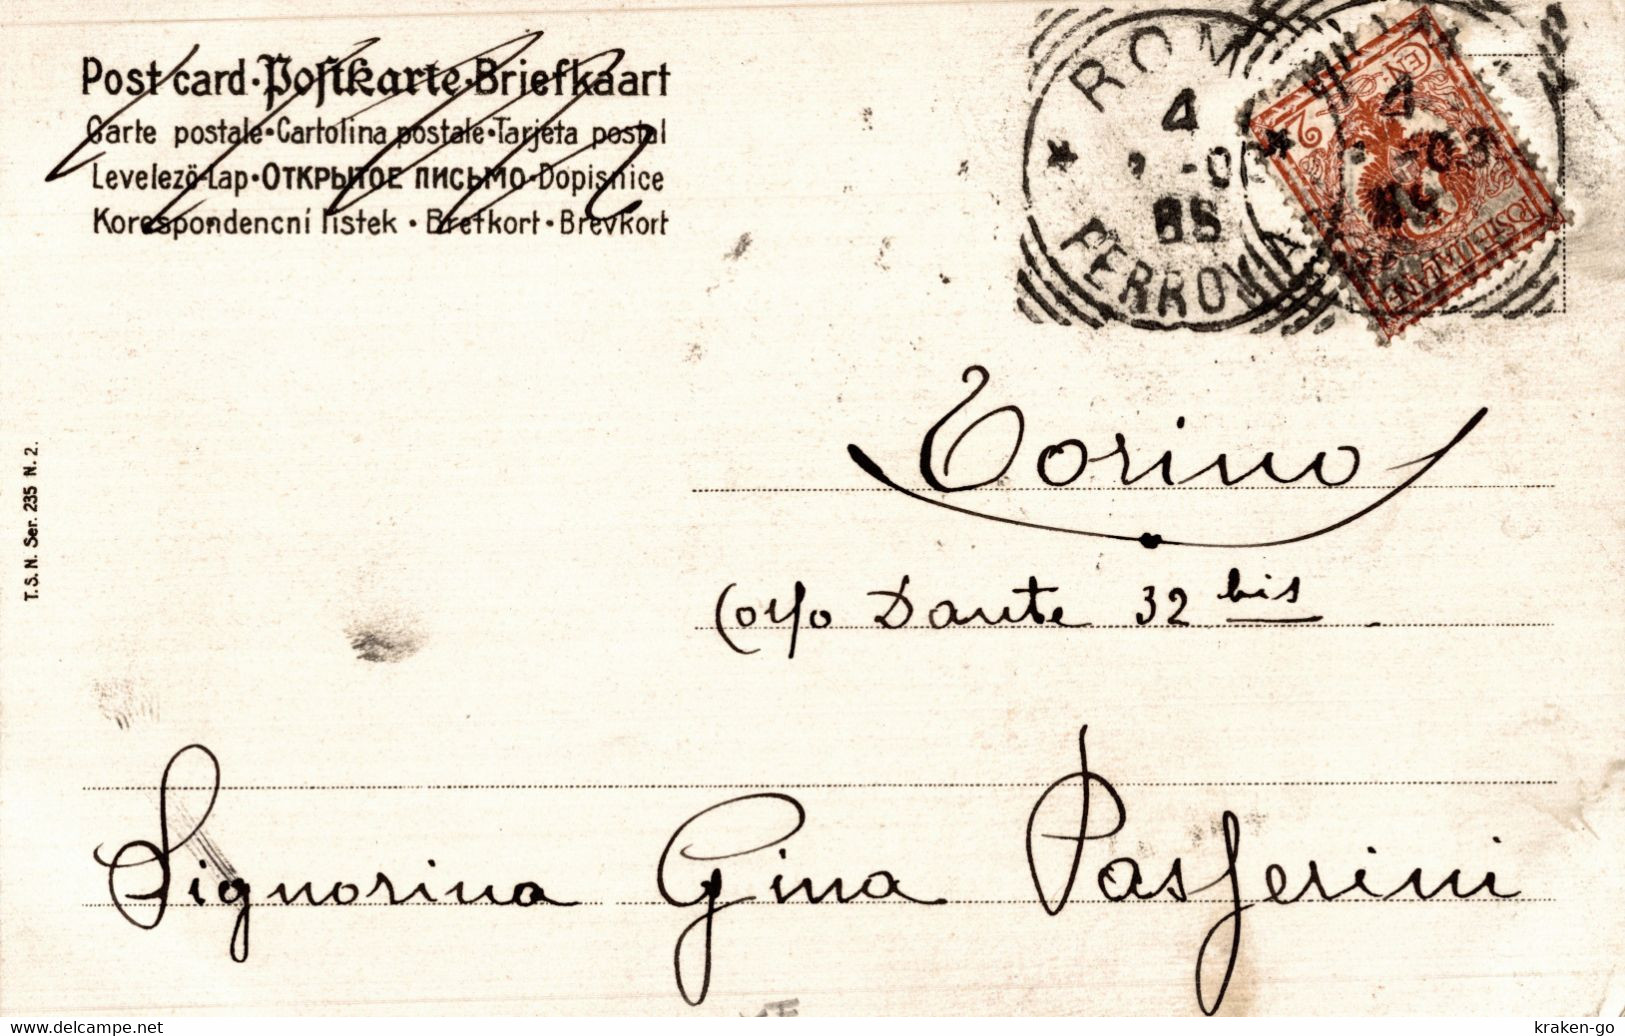 Post card · Postkarte · Briefkaart
Carte postale · Cartolina postale · Tarjeta postal
Levelező-Lap · ОТКРЫТОЕ ПИСЬМО · Dopisnice
Korespondencní listek · Brefkort · Brevkort
ROM
4
FERROVIA
2
POSTE ITALIANE
T.S.N. Ser. 235 N. 2.
Torino
Corso Dante 32 bis
Signorina Gina Passerini
delcampe.net
kraken-go